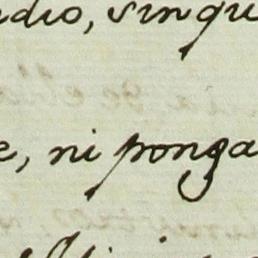 edio, sinqu
e, ni ponga